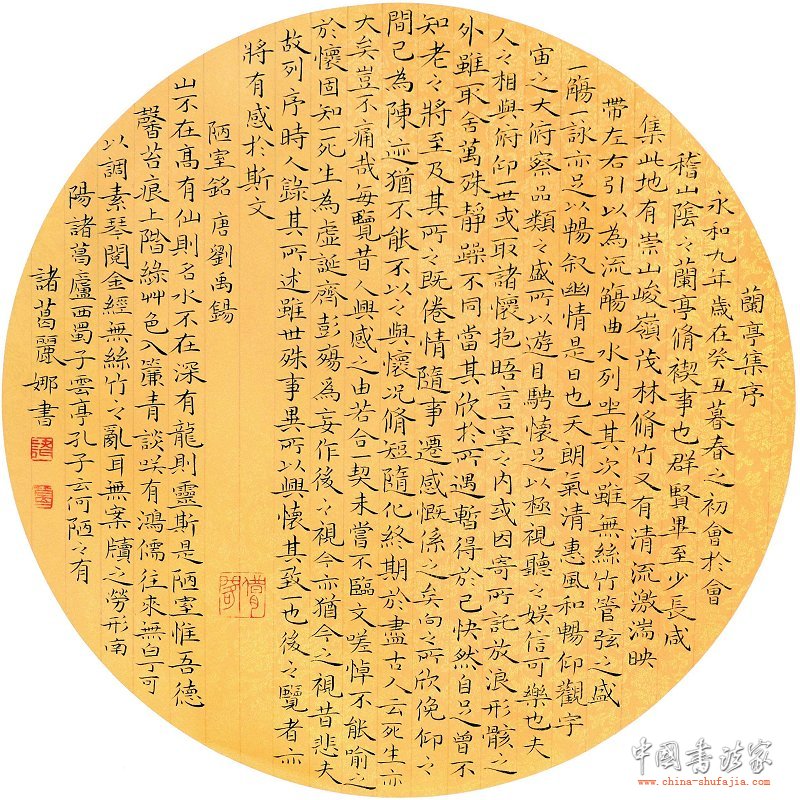 蘭亭集序
永和九年歲在癸丑暮春之初會於會
稽山陰之蘭亭脩禊事也群賢畢至少長咸
集此地有崇山峻嶺茂林脩竹又有清流激湍映
帶左右引以為流觴曲水列坐其次雖無絲竹管弦之盛
一觴一詠亦足以暢叙幽情是日也天朗氣清惠風和暢仰觀宇
宙之大俯察品類之盛所以遊目騁懷足以極視聽之娛信可樂也夫
人之相與俯仰一世或取諸懷抱晤言室之內或因寄所託放浪形骸之
外雖取舍萬殊靜躁不同當其欣於所遇暫得於己快然自足曾不
知老之將至及其所之既倦情隨事遷感慨係之矣向之所欣俛仰之
間已為陳迹猶不能不以之興懷况脩短隨化終期於盡古人云死生亦
大矣豈不痛哉每覽昔人興感之由若合一契未嘗不臨文嗟悼不能喻之
於懷固知一死生為虛誕齊彭殤為妄作後之視今亦猶今之視昔悲夫
故列序時人錄其所述雖世殊事異所以興懷其致一也後之覽者亦
將有感於斯文
陋室銘 唐劉禹錫
山不在高有仙則名水不在深有龍則靈斯是陋室惟吾德
馨苔痕上階綠艸色入簾青談笑有鴻儒往來無白丁可
以調素琴閱金經無絲竹之亂耳無案牘之勞形南
陽諸葛廬西蜀子雲亭孔子云何陋之有
諸葛麗娜書
中國书法家
www.china-shufajia.com